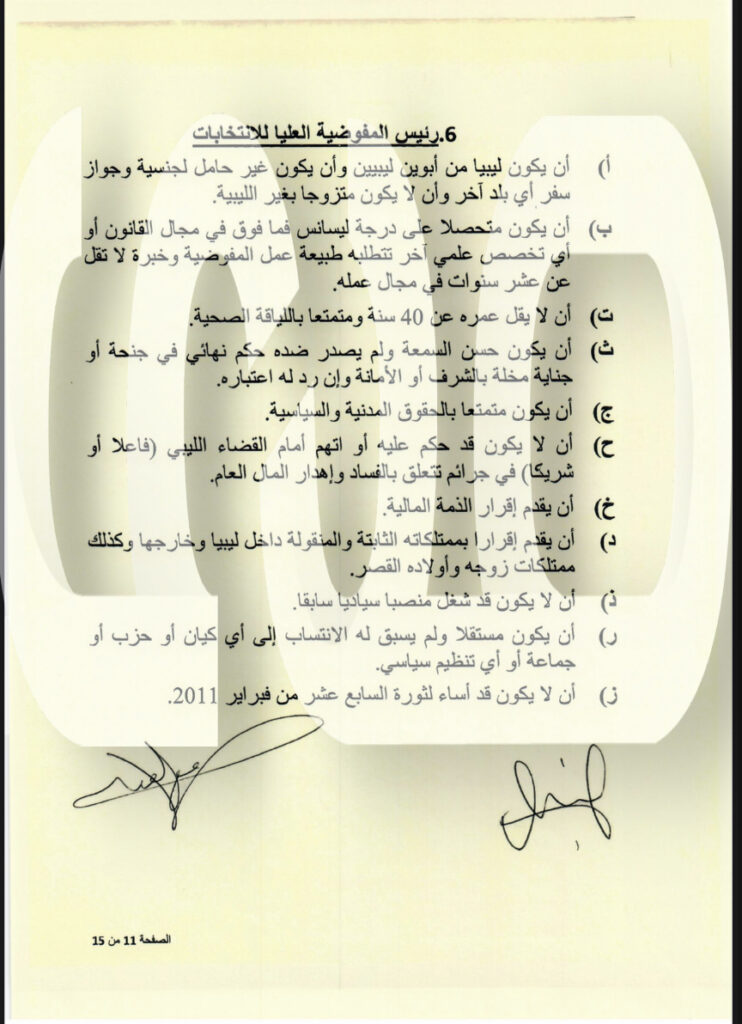 6.رئيس المفوضية العليا للانتخابات
أ) أن يكون ليبيا من أبوين ليبيين وأن يكون غير حامل لجنسية وجواز
سفر أي بلد آخر وأن لا يكون متزوجا بغير الليبية.
ب) أن يكون متحصلا على درجة ليسانس فما فوق في مجال القانون أو
أي تخصص علمي آخر تتطلبه طبيعة عمل المفوضية وخبرة لا تقل
عن عشر سنوات في مجال عمله.
ت) أن لا يقل عمره عن 40 سنة ومتمتعا باللياقة الصحية.
ث) أن يكون حسن السمعة ولم يصدر ضده حكم نهائي في جنحة أو
جناية مخلة بالشرف أو الأمانة وإن رد له اعتباره.
ج) أن يكون متمتعا بالحقوق المدنية والسياسية.
ح) أن لا يكون قد حكم عليه أو اتهم أمام القضاء الليبي (فاعلا أو
شريكا) في جرائم تتعلق بالفساد وإهدار المال العام.
خ) أن يقدم إقرار الذمة المالية.
د) أن يقدم إقرارا بممتلكاته الثابتة والمنقولة داخل ليبيا وخارجها وكذلك
ممتلكات زوجه وأولاده القصر.
ذ) أن لا يكون قد شغل منصبا سياديا سابقا.
ر) أن يكون مستقلا ولم يسبق له الانتساب إلى أي كيان أو حزب أو
جماعة أو أي تنظيم سياسي.
ز) أن لا يكون قد أساء لثورة السابع عشر من فبراير 2011.
الصفحة 11 من 15